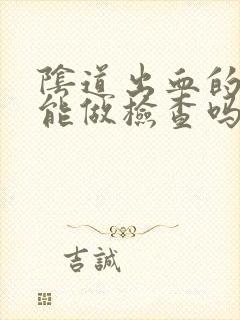 陰道出血的
能做檢查嗎
吉誠